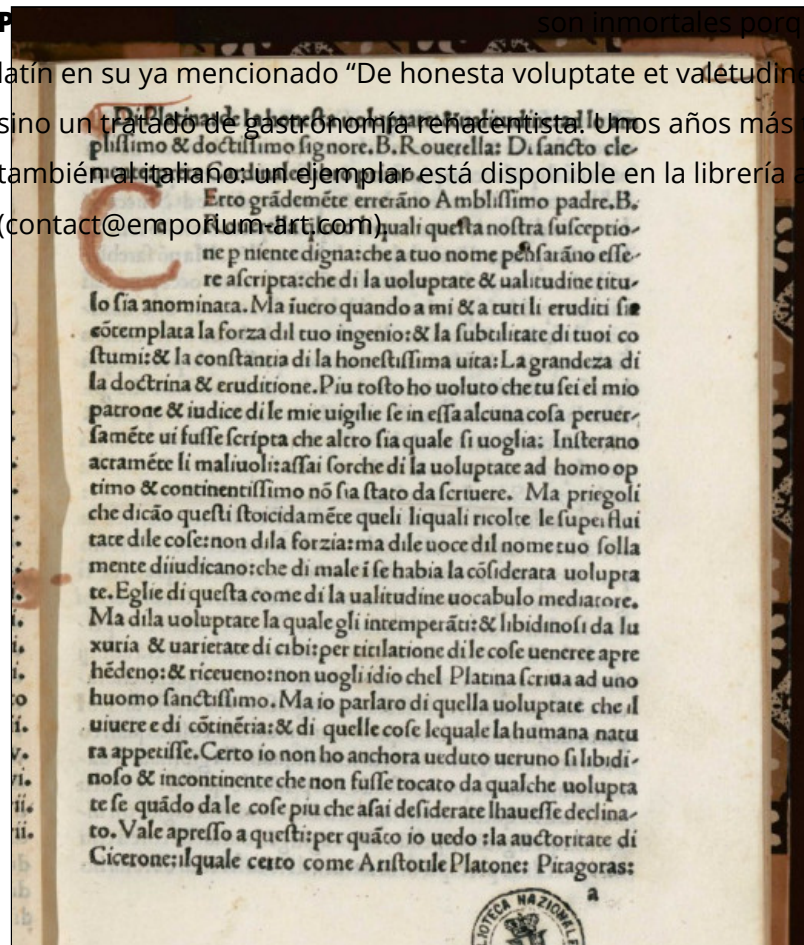 P son inmortales porq
latín en su ya mencionado “De honesta voluptate et valetudin
Di Platina de la honeſta uoluptate
sino un tratado de gastronomía renacentista. Unos años más
pliſſimo & doctiſſimo ſignore.B.Rouerella: Di ſancto cle-
también al italiano: un ejemplar está disponible en la librería a
CErto grãdemẽte errerãno Ambliſſimo padre.B.
(contact@emporium-art.com).
quali queſta noſtra ſuſceptio-
ne p niente digna:che a tuo nome penſarãno eſſe-
re aſcripta:che di la uoluptate & ualitudine titu-
lo ſia anominata. Ma iuero quando a mi & a tuti li eruditi ſie
cõtemplata la forza dil tuo ingenio:& la ſubtilitate di tuoi co
ſtumi:& la conſtantia di la honeſtiſſima uita: La grandeza di
la doctrina & eruditione.Piu toſto ho uoluto che tu ſei el mio
patrone & iudice di le mie uigilie ſe in eſſa alcuna coſa peruer-
ſamẽte ui fuſſe ſcripta che altro ſia quale ſi uoglia: Inſterano
acramẽte li maliuoli:aſſai forche di la uoluptate ad homo op
timo & continentiſſimo nõ ſia ſtato da ſcriuere. Ma priegoli
che dicão queſti ſtoicidamẽte queli liquali ricolte le ſuperflui
tate di le coſe:non di la forzia:ma di le uoce dil nome tuo ſolla
mente diiudicano:che di male ĩ ſe habia la cõſiderata uolupta
te.Eglie di queſta come di la ualitudine uocabulo mediatore.
Ma di la uoluptate la quale gli intemperãti:& libidinoſi da lu
xuria & uarietate di cibi:per titilatione di le coſe ueneree apre
hẽdeno:& riceueno:non uogli idio chel Platina ſcriua ad uno
huomo ſanctiſſimo.Ma io parlaro di quella uoluptate che il
uiuere e di cõtinẽtia:& di quelle coſe lequale la humana natu
ra appetiſſe.Certo io non ho anchora ueduto ueruno ſi libidi-
noſo & incontinente che non fuſſe tocato da qualche uolupta
te ſe quãdo da le coſe piu che aſai deſiderate lhaueſſe declina-
to.Vale apreſſo a queſti:per quãto io uedo :la auctoritate di
Cicerone:ilquale certo come Ariſtotile Platone: Pitagoras:
a
BLIOTECA NAZIONALE